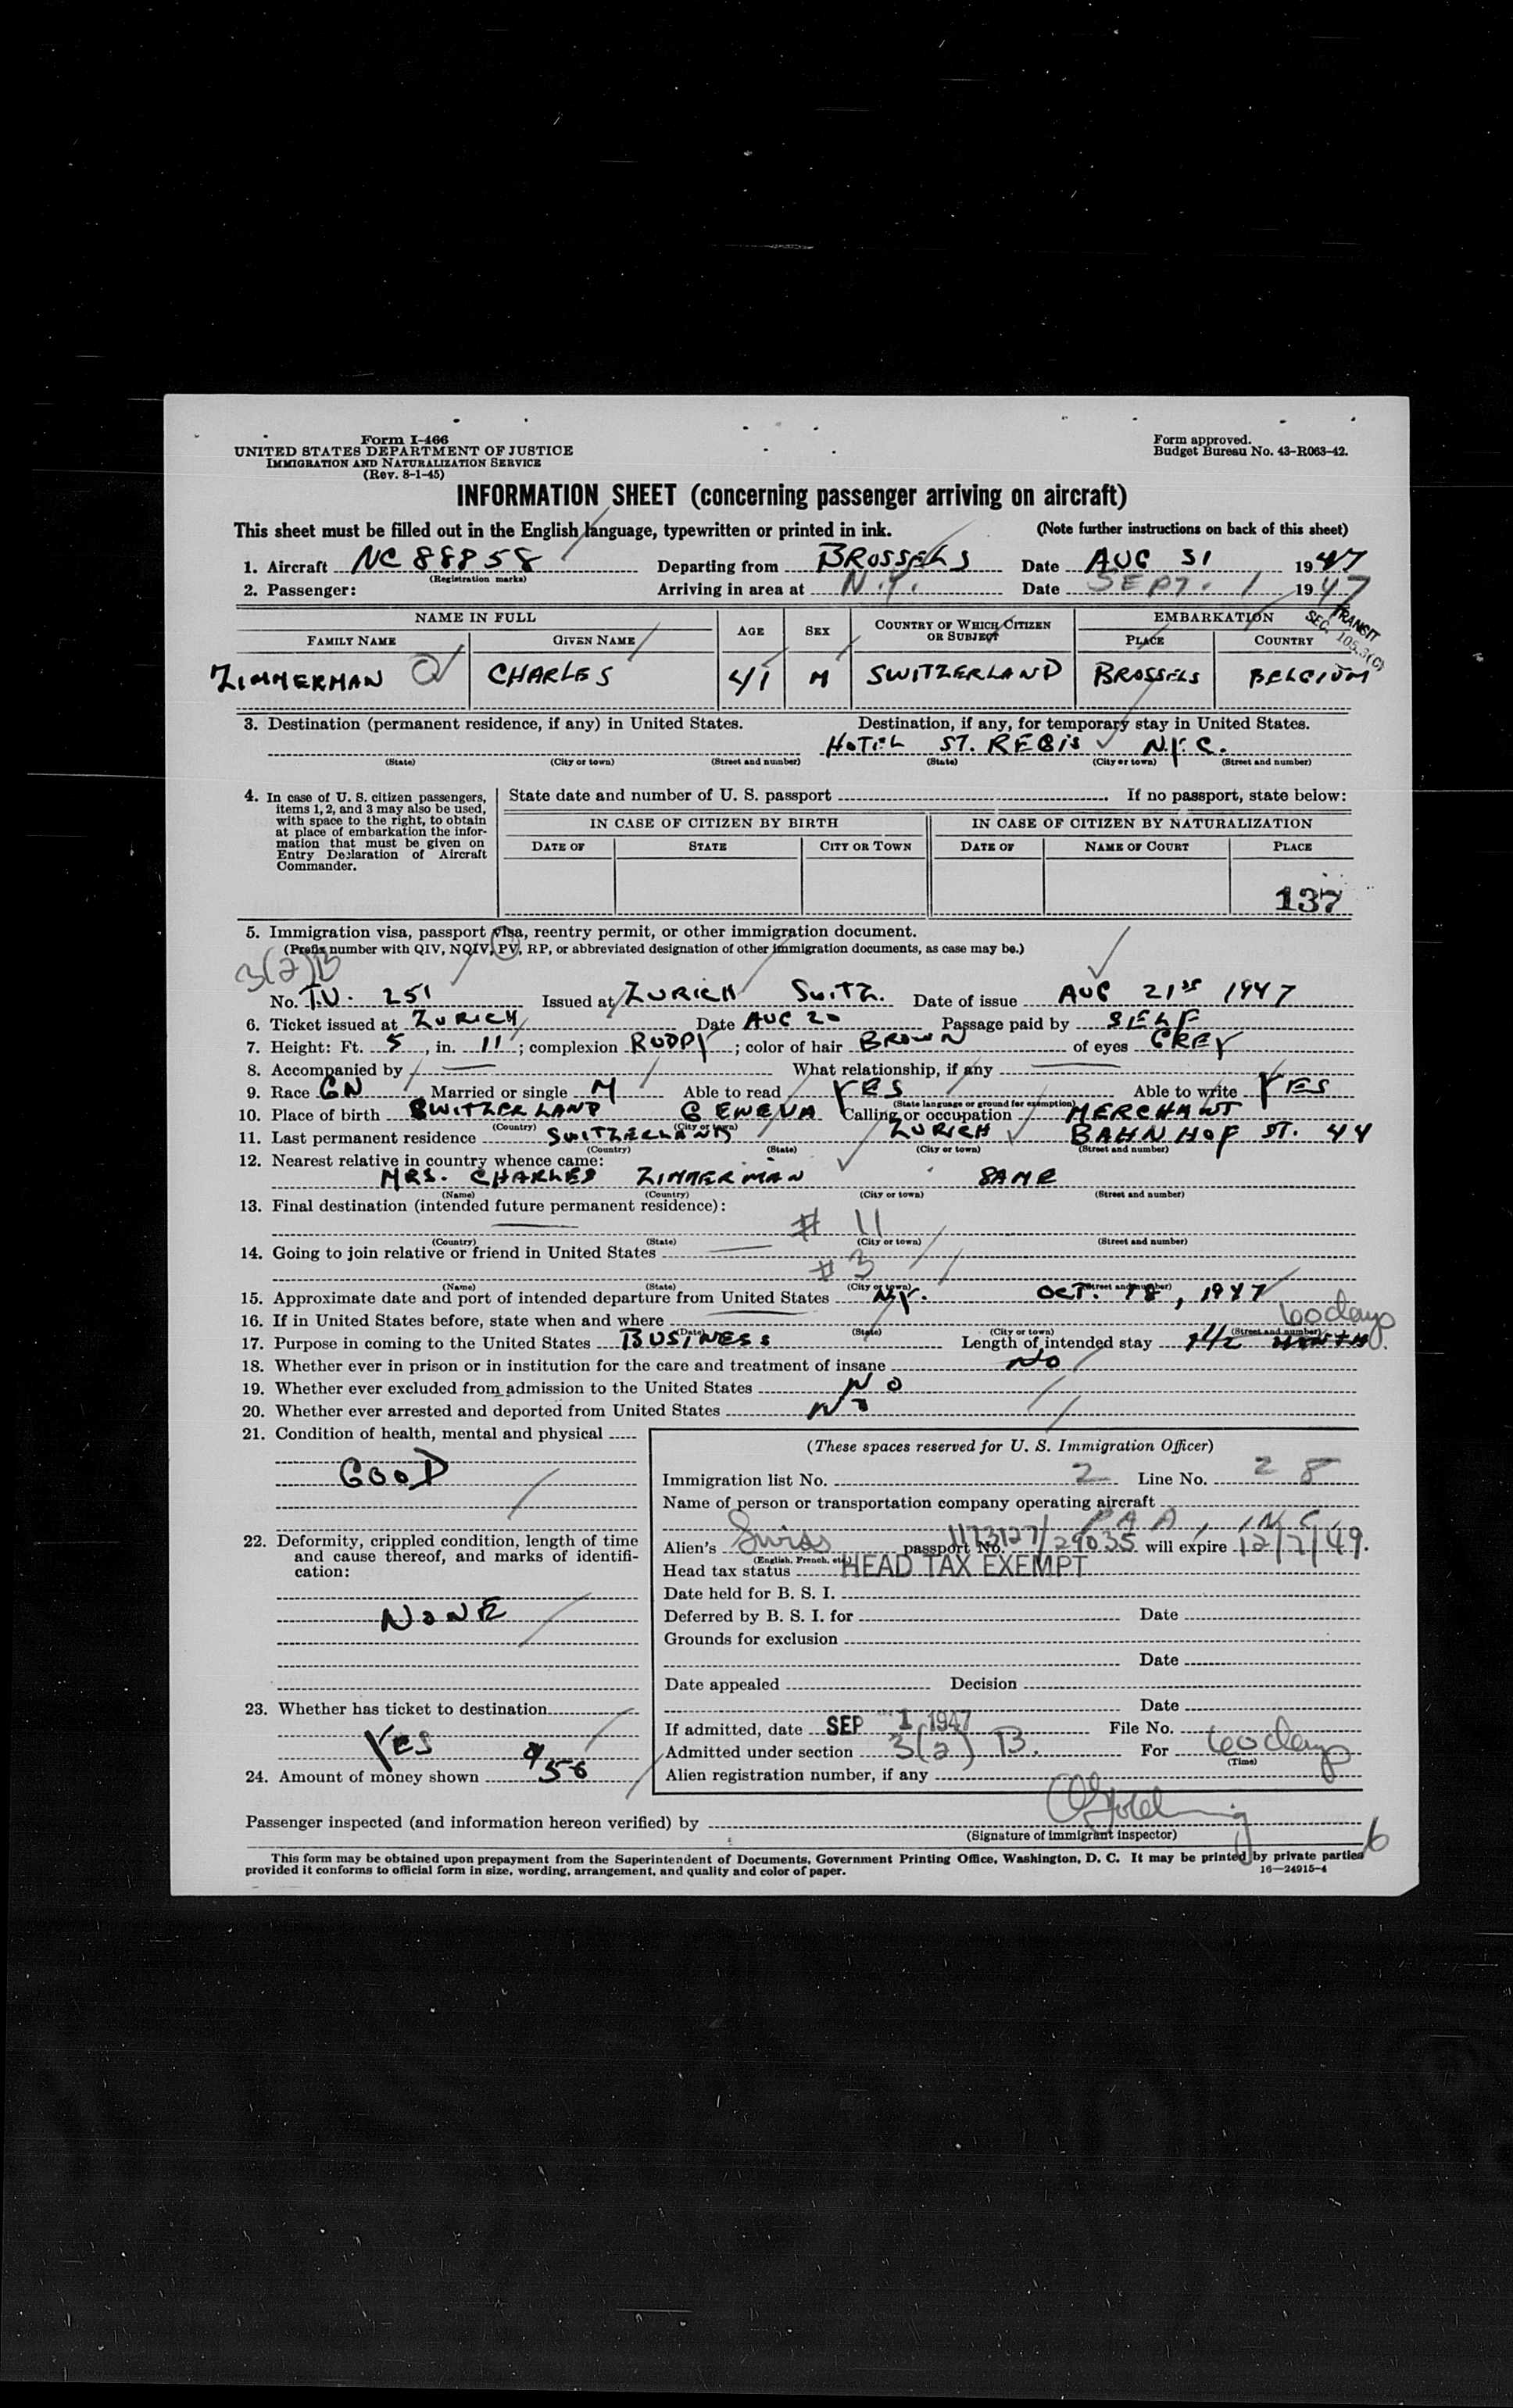 Form I-466
UNITED STATES DEPARTMENT OF JUSTICE
IMMIGRATION AND NATURALIZATION SERVICE
(Rev. 8-1-45)
Form approved.
Budget Bureau No. 43-R063-42.
INFORMATION SHEET (concerning passenger arriving on aircraft)
This sheet must be filled out in the English language, typewritten or printed in ink. (Note further instructions on back of this sheet)
1. Aircraft NC 88858 Departing from BROSSELS Date AUG 31 1947
(Registration marks)
2. Passenger: Arriving in area at N.Y. Date SEPT. 1 1947
TRANSIT
SEC. 105.3(C)
NAME IN FULL AGE SEX COUNTRY OF WHICH CITIZEN OR SUBJECT EMBARKATION
FAMILY NAME GIVEN NAME PLACE COUNTRY
ZIMMERMAN CHARLES 41 M SWITZERLAND BROSSELS BELGIUM
3. Destination (permanent residence, if any) in United States. Destination, if any, for temporary stay in United States.
HOTEL ST. REGIS N.Y.C.
(State) (City or town) (Street and number) (State) (City or town) (Street and number)
4. In case of U. S. citizen passengers, items 1, 2, and 3 may also be used, with space to the right, to obtain at place of embarkation the information that must be given on Entry Declaration of Aircraft Commander.
State date and number of U. S. passport If no passport, state below:
IN CASE OF CITIZEN BY BIRTH IN CASE OF CITIZEN BY NATURALIZATION
DATE OF STATE CITY OR TOWN DATE OF NAME OF COURT PLACE
137
5. Immigration visa, passport visa, reentry permit, or other immigration document.
(Prefix number with QIV, NQIV, PV, RP, or abbreviated designation of other immigration documents, as case may be.)
3(2)B
No. T.V. 251 Issued at ZURICH SWITZ. Date of issue AUG 21st 1947
6. Ticket issued at ZURICH Date AUG 20 Passage paid by SELF
7. Height: Ft. 5, in. 11; complexion RUDDY; color of hair BROWN of eyes GREY
8. Accompanied by — What relationship, if any —
9. Race GN Married or single M Able to read YES Able to write YES
(State language or ground for exemption)
10. Place of birth SWITZERLAND GENEVA Calling or occupation MERCHANT
(Country) (City or town)
11. Last permanent residence SWITZERLAND ZURICH BAHNHOF ST. 44
(Country) (State) (City or town) (Street and number)
12. Nearest relative in country whence came:
MRS. CHARLES ZIMMERMAN SAME
(Name) (Country) (City or town) (Street and number)
13. Final destination (intended future permanent residence):
— # 11
(Country) (State) (City or town) (Street and number)
14. Going to join relative or friend in United States —
# 3
(Name) (State) (City or town) (Street and number)
15. Approximate date and port of intended departure from United States N.Y. OCT. 18, 1947
16. If in United States before, state when and where — 60 days
(Date) (State) (City or town) (Street and number)
17. Purpose in coming to the United States BUSINESS Length of intended stay 1 1/2 MONTH.
18. Whether ever in prison or in institution for the care and treatment of insane NO
19. Whether ever excluded from admission to the United States NO
20. Whether ever arrested and deported from United States NO
21. Condition of health, mental and physical
GOOD
22. Deformity, crippled condition, length of time and cause thereof, and marks of identification:
NONE
23. Whether has ticket to destination
YES
24. Amount of money shown $56
(These spaces reserved for U. S. Immigration Officer)
Immigration list No. 2 Line No. 28
Name of person or transportation company operating aircraft
PAA, INC.
Alien's Swiss passport No. 1173127/29035 will expire 12/7/49.
(English, French, etc.)
Head tax status HEAD TAX EXEMPT
Date held for B. S. I.
Deferred by B. S. I. for Date
Grounds for exclusion
Date
Date appealed Decision
Date
If admitted, date SEP 1 1947 File No.
Admitted under section 3(2) B. For 60 days
(Time)
Alien registration number, if any
Passenger inspected (and information hereon verified) by
(Signature of immigrant inspector)
6
This form may be obtained upon prepayment from the Superintendent of Documents, Government Printing Office, Washington, D. C. It may be printed by private parties
provided it conforms to official form in size, wording, arrangement, and quality and color of paper. 16—24915-4